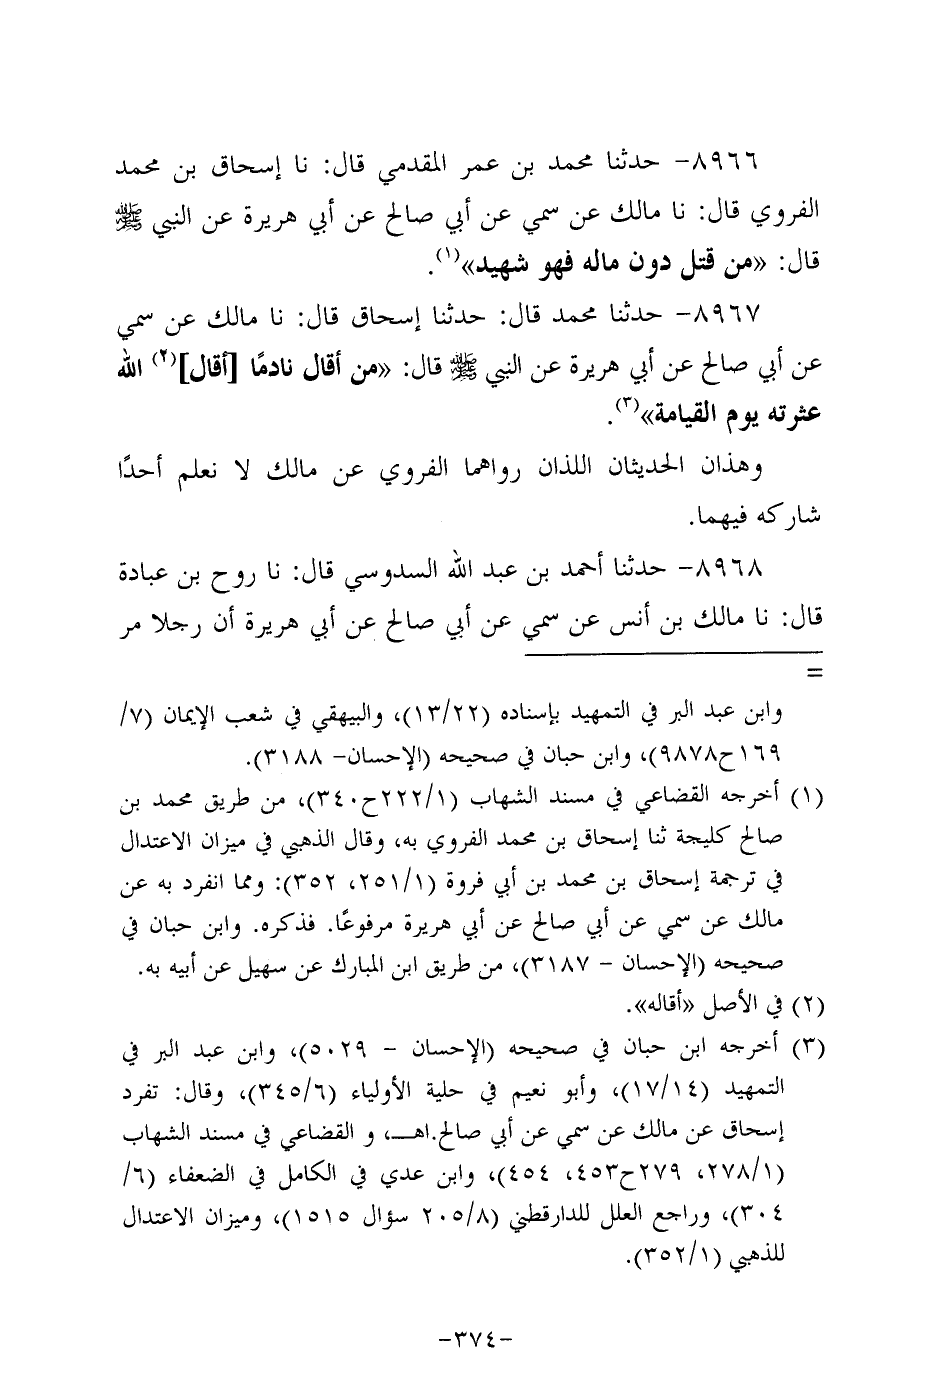 ٨٩٦٦- حدثنا محمد بن عمر المقدمي قال: نا إسحاق بن محمد
الفروي قال: نا مالك عن سمي عن أبي صالح عن أبي هريرة عن النبي ﷺ
قال: «من قتل دون ماله فهو شهيد»(١).
٨٩٦٧- حدثنا محمد قال: حدثنا إسحاق قال: نا مالك عن سمي
عن أبي صالح عن أبي هريرة عن النبي ﷺ قال: «من أقال نادمًا [أقال](٢) الله
عثرته يوم القيامة»(٣).
وهذان الحديثان اللذان رواهما الفروي عن مالك لا نعلم أحدًا
شاركه فيهما.
٨٩٦٨- حدثنا أحمد بن عبد الله السدوسي قال: نا روح بن عبادة
قال: نا مالك بن أنس عن سمي عن أبي صالح عن أبي هريرة أن رجلا مر
=
وابن عبد البر في التمهيد بإسناده (١٣/٢٢)، والبيهقي في شعب الإيمان (٧/
١٦٩ح٩٨٧٨)، وابن حبان في صحيحه (الإحسان- ٣١٨٨).
(١) أخرجه القضاعي في مسند الشهاب (٢٢٢/١ح٣٤٠)، من طريق محمد بن
صالح كليجة ثنا إسحاق بن محمد الفروي به، وقال الذهبي في ميزان الاعتدال
في ترجمة إسحاق بن محمد بن أبي فروة (٢٥١/١، ٣٥٢): ومما انفرد به عن
مالك عن سمي عن أبي صالح عن أبي هريرة مرفوعًا. فذكره. وابن حبان في
صحيحه (الإحسان - ٣١٨٧)، من طريق ابن المبارك عن سهيل عن أبيه به.
(٢) في الأصل «أقاله».
(٣) أخرجه ابن حبان في صحيحه (الإحسان - ٥٠٢٩)، وابن عبد البر في
التمهيد (١٧/١٤)، وأبو نعيم في حلية الأولياء (٣٤٥/٦)، وقال: تفرد
إسحاق عن مالك عن سمي عن أبي صالح.اهــ، و القضاعي في مسند الشهاب
(٢٧٨/١، ٢٧٩ح٤٥٣، ٤٥٤)، وابن عدي في الكامل في الضعفاء (٦/
٣٠٤)، وراجع العلل للدارقطني (٢٠٥/٨ سؤال ١٥١٥)، وميزان الاعتدال
للذهبي (٣٥٢/١).
-٣٧٤-